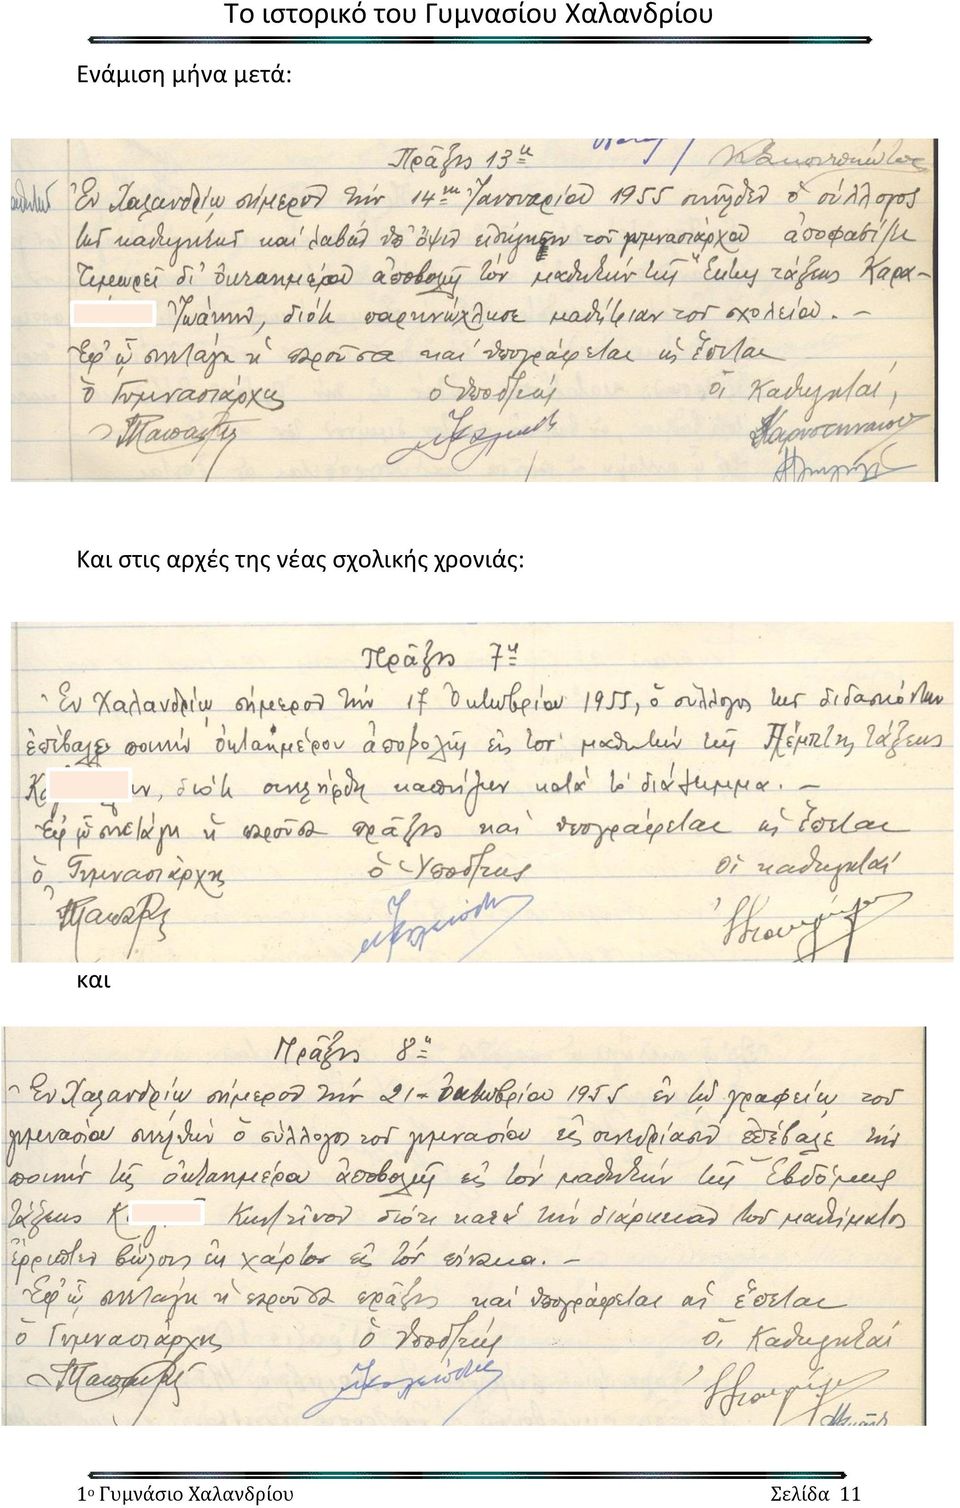 Το ιστορικό του Γυμνασίου Χαλανδρίου
Ενάμιση μήνα μετά:
Πρᾶξις 13η
Ἐν Χαλανδρίῳ σήμερον τὴν 14ην Ἰανουαρίου 1955 συνῆλθεν ὁ σύλλογος
τῶν καθηγητῶν καὶ λαβὼν ὑπ' ὄψιν εἰσήγησιν τοῦ γυμνασιάρχου ἀποφασίζει
τιμωρεῖ δι' ὀκταημέρου ἀποβολῆς τὸν μαθητὴν τῆς Ἕκτης τάξεως Καρα-
Ἰωάννην, διότι παρηνώχλησε μαθήτριαν τοῦ σχολείου. –
Ἐφ' ᾧ συνετάγη ἡ παροῦσα καὶ ὑπογράφεται ὡς ἕπεται
ὁ Γυμνασιάρχης ὁ Ὑποδ/τής οἱ Καθηγηταί,
Και στις αρχές της νέας σχολικής χρονιάς:
Πρᾶξις 7η
Ἐν Χαλανδρίῳ σήμερον τὴν 17 Ὀκτωβρίου 1955, ὁ σύλλογος τῶν διδασκόντων
ἐπέβαλε ποινὴν ὀκταημέρου ἀποβολῆς εἰς τὸν μαθητὴν τῆς Πέμπτης τάξεως
διότι συνελήφθη καπνίζων κατὰ τὸ διάλειμμα. –
Ἐφ' ᾧ συνετάγη ἡ παροῦσα πρᾶξις καὶ ὑπογράφεται ὡς ἕπεται
ὁ Γυμνασιάρχης ὁ Ὑποδ/τής οἱ καθηγηταί
και
Πρᾶξις 8η
Ἐν Χαλανδρίῳ σήμερον τὴν 21 – Ὀκτωβρίου 1955 ἐν τῷ γραφείῳ τοῦ
γυμνασίου συνελθὼν ὁ σύλλογος τοῦ γυμνασίου εἰς συνεδρίασιν ἐπέβαλε τὴν
ποινὴν τῆς ὀκταημέρου ἀποβολῆς εἰς τὸν μαθητὴν τῆς Ἑβδόμης
τάξεως Κων/τῖνον διότι κατὰ τὴν διάρκειαν τοῦ μαθήματος
ἔρριπτεν βώλους ἐκ χάρτου εἰς τὸν πίνακα. –
Ἐφ' ᾧ συνετάγη ἡ παροῦσα πρᾶξις καὶ ὑπογράφεται ὡς ἕπεται
ὁ Γυμνασιάρχης ὁ Ὑποδ/τής οἱ Καθηγηταί
1ο Γυμνάσιο Χαλανδρίου Σελίδα 11